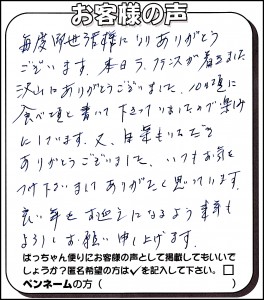 お客様の声
毎度お世話様になりありがとう
ございます。本日ラ・フランスが着きました
沢山にありがとうございました。10日頃に
食べ頃と書いて下さっていましたので楽しみ
にしています。又、お菓もいただき
ありがとうございました。いつもお気を
つけ下さいまして ありがたく思っています。
良い年をお迎えになるよう 来年も
よろしくお願い申し上げます。
はっちゃん便りにお客様の声として掲載してもいいで
しょうか？匿名希望の方は✓を記入して下さい。□
ペンネームの方（　　　　　）